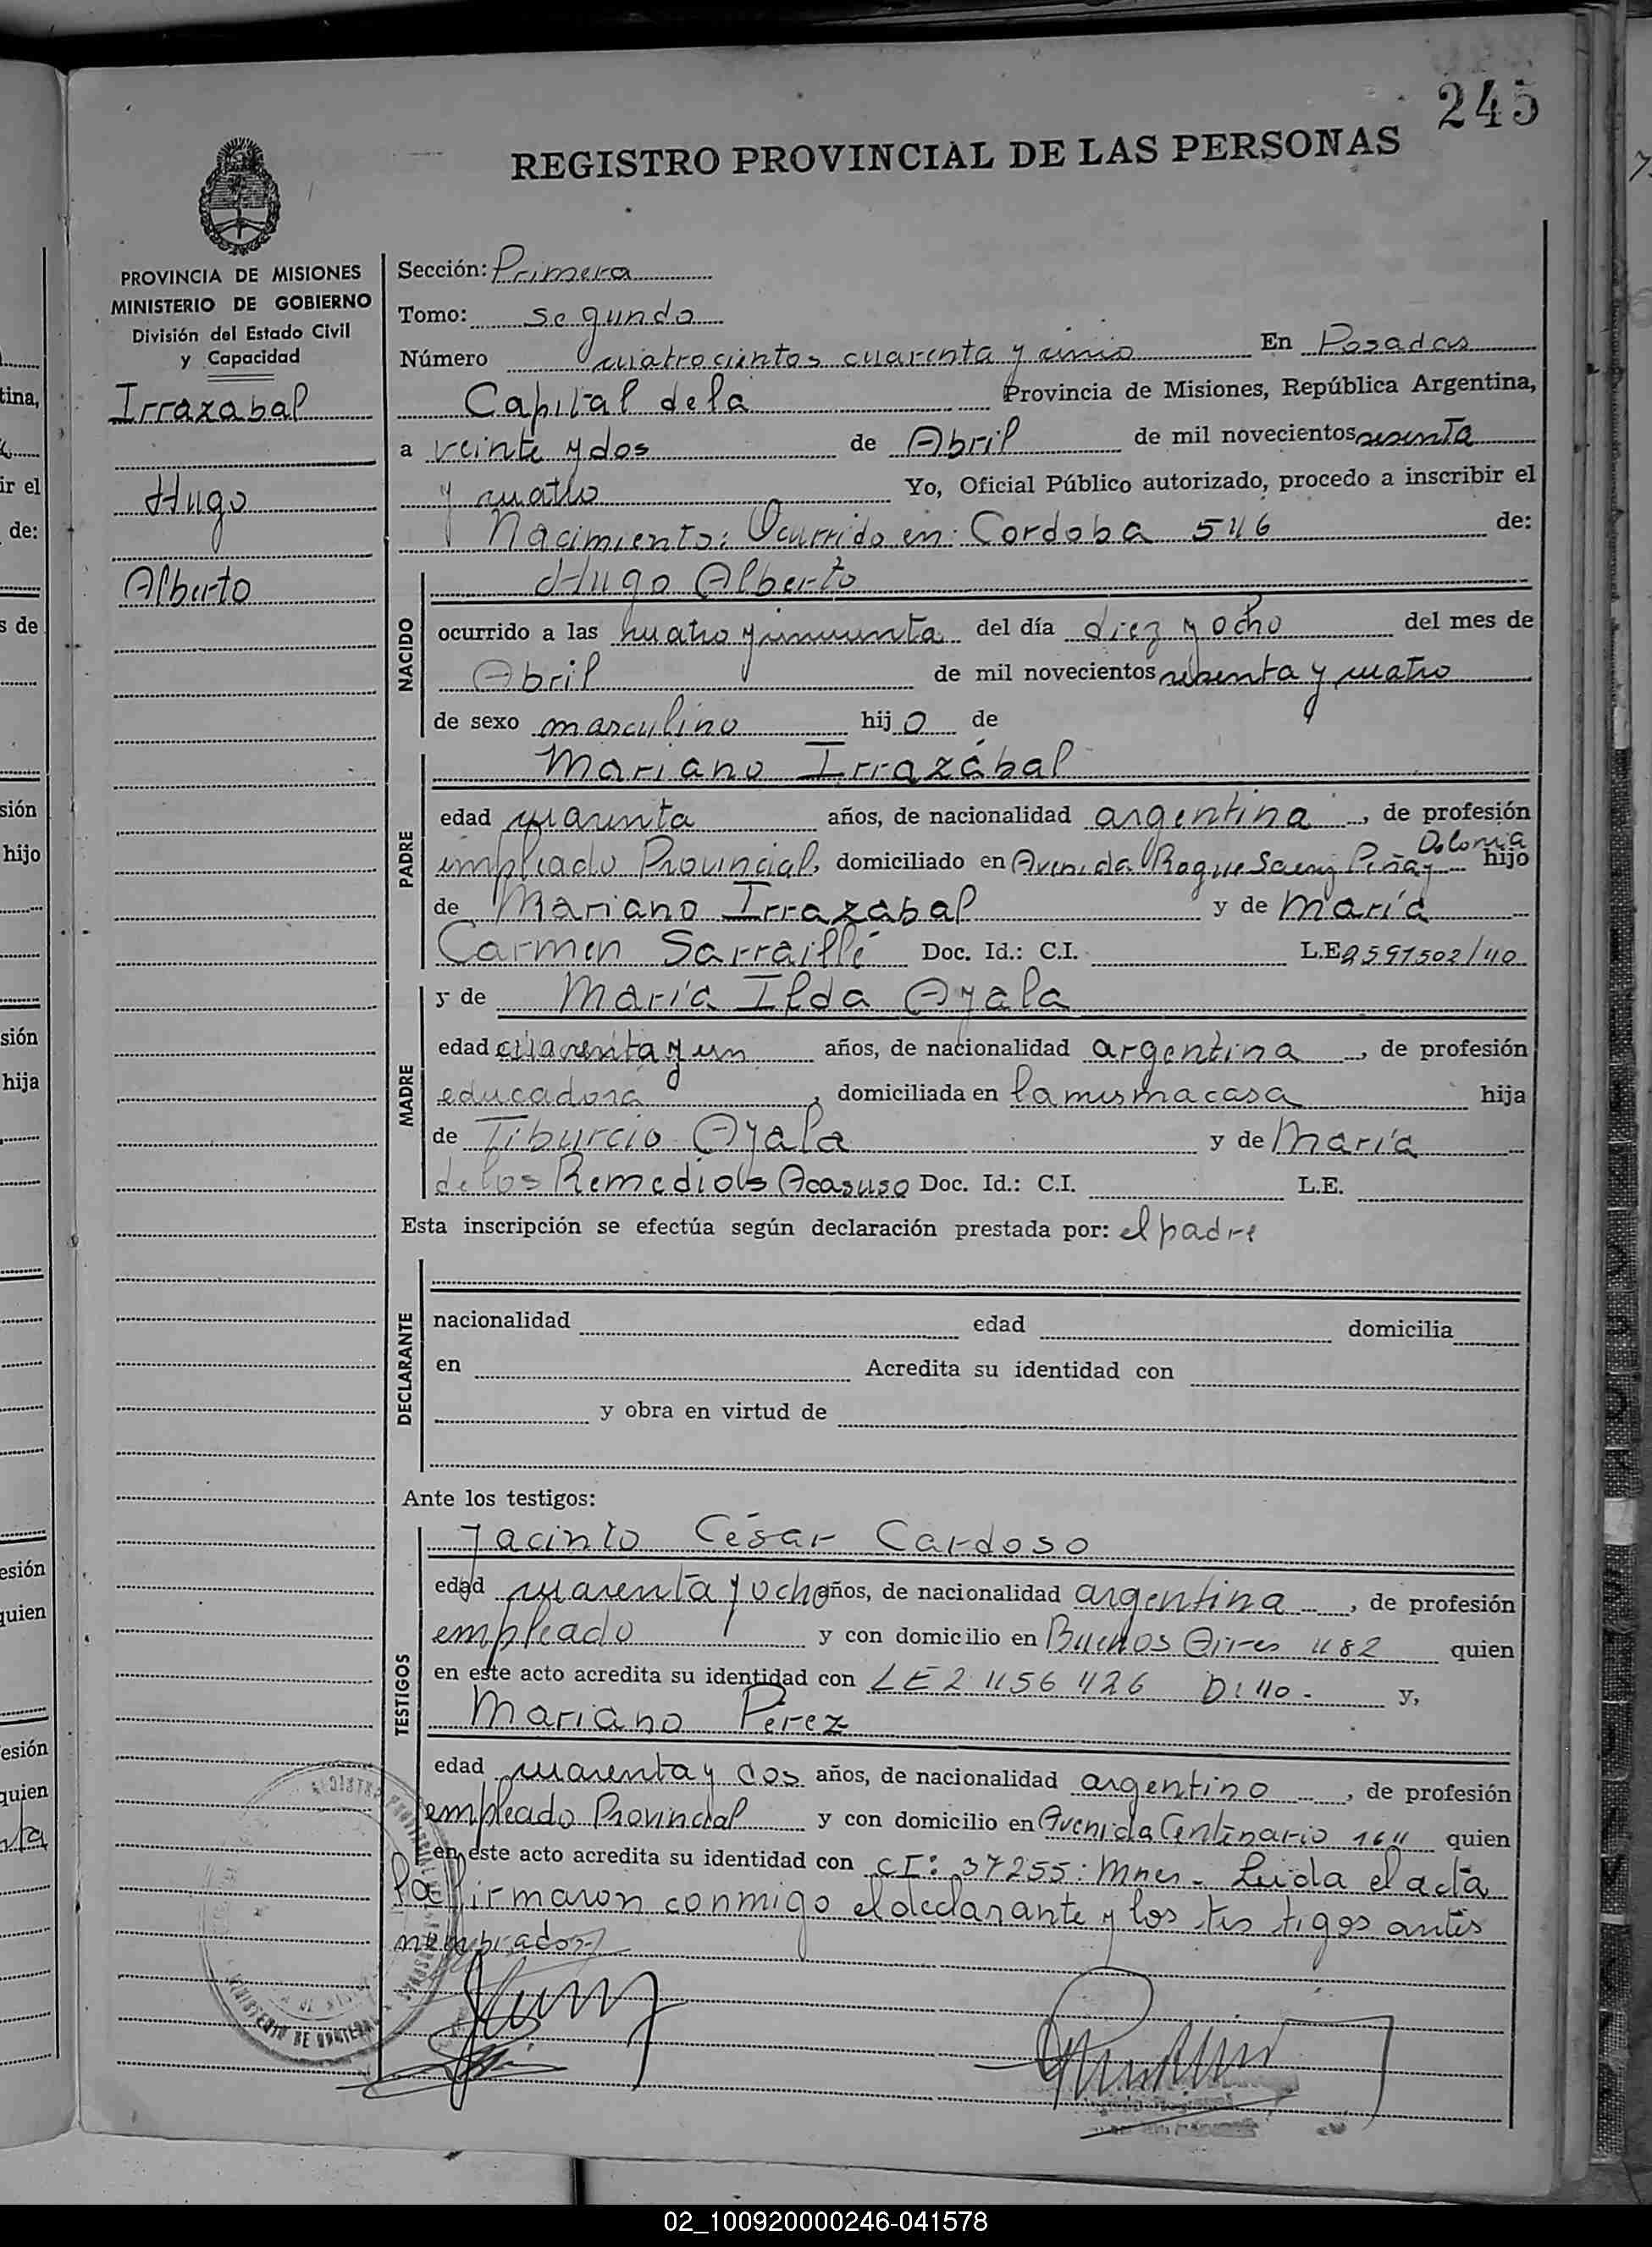 245
REGISTRO PROVINCIAL DE LAS PERSONAS
PROVINCIA DE MISIONES
MINISTERIO DE GOBIERNO
División del Estado Civil
y Capacidad
Irrazabal
Hugo
Alberto
Sección: Primera
Tomo: segundo
Número cuatrocientos cuarenta y cinco En Posadas
Capital de la Provincia de Misiones, República Argentina,
a veinte y dos de Abril de mil novecientos sesenta
y cuatro Yo, Oficial Público autorizado, procedo a inscribir el
Nacimiento: Ocurrido en: Cordoba 546 de:
NACIDO
Hugo Alberto
ocurrido a las cuatro y cincuenta del día diez y ocho del mes de
Abril de mil novecientos sesenta y cuatro
de sexo masculino hijo de
PADRE
Mariano Irrazábal
edad cuarenta años, de nacionalidad argentina, de profesión
empleado Provincial, domiciliado en Avenida Roque Saenz Peña y hijo
de Mariano Irrazabal y de María
Carmen Sarraillé Doc. Id.: C.I. L.E. 2591502/40
MADRE
y de María Ilda Ayala
edad cuarenta y un años, de nacionalidad argentina, de profesión
educadora, domiciliada en la misma casa hija
de Tiburcio Ayala y de María
de los Remedios Acasuso Doc. Id.: C.I. L.E.
Esta inscripción se efectúa según declaración prestada por: el padre
DECLARANTE
nacionalidad edad domicilia
en Acredita su identidad con
y obra en virtud de
Ante los testigos:
TESTIGOS
Jacinto César Cardoso
edad cuarenta y ocho años, de nacionalidad argentina, de profesión
empleado y con domicilio en Buenos Aires 482 quien
en este acto acredita su identidad con LE 2456426 D:40.- y,
Mariano Perez
edad cuarenta y dos años, de nacionalidad argentino, de profesión
empleado Provincial y con domicilio en Avenida Centenario 164 quien
en este acto acredita su identidad con CI: 37255: Mnes. Leida el acta
la firmaron conmigo el declarante y los testigos antes
nombrados
02_100920000246-041578